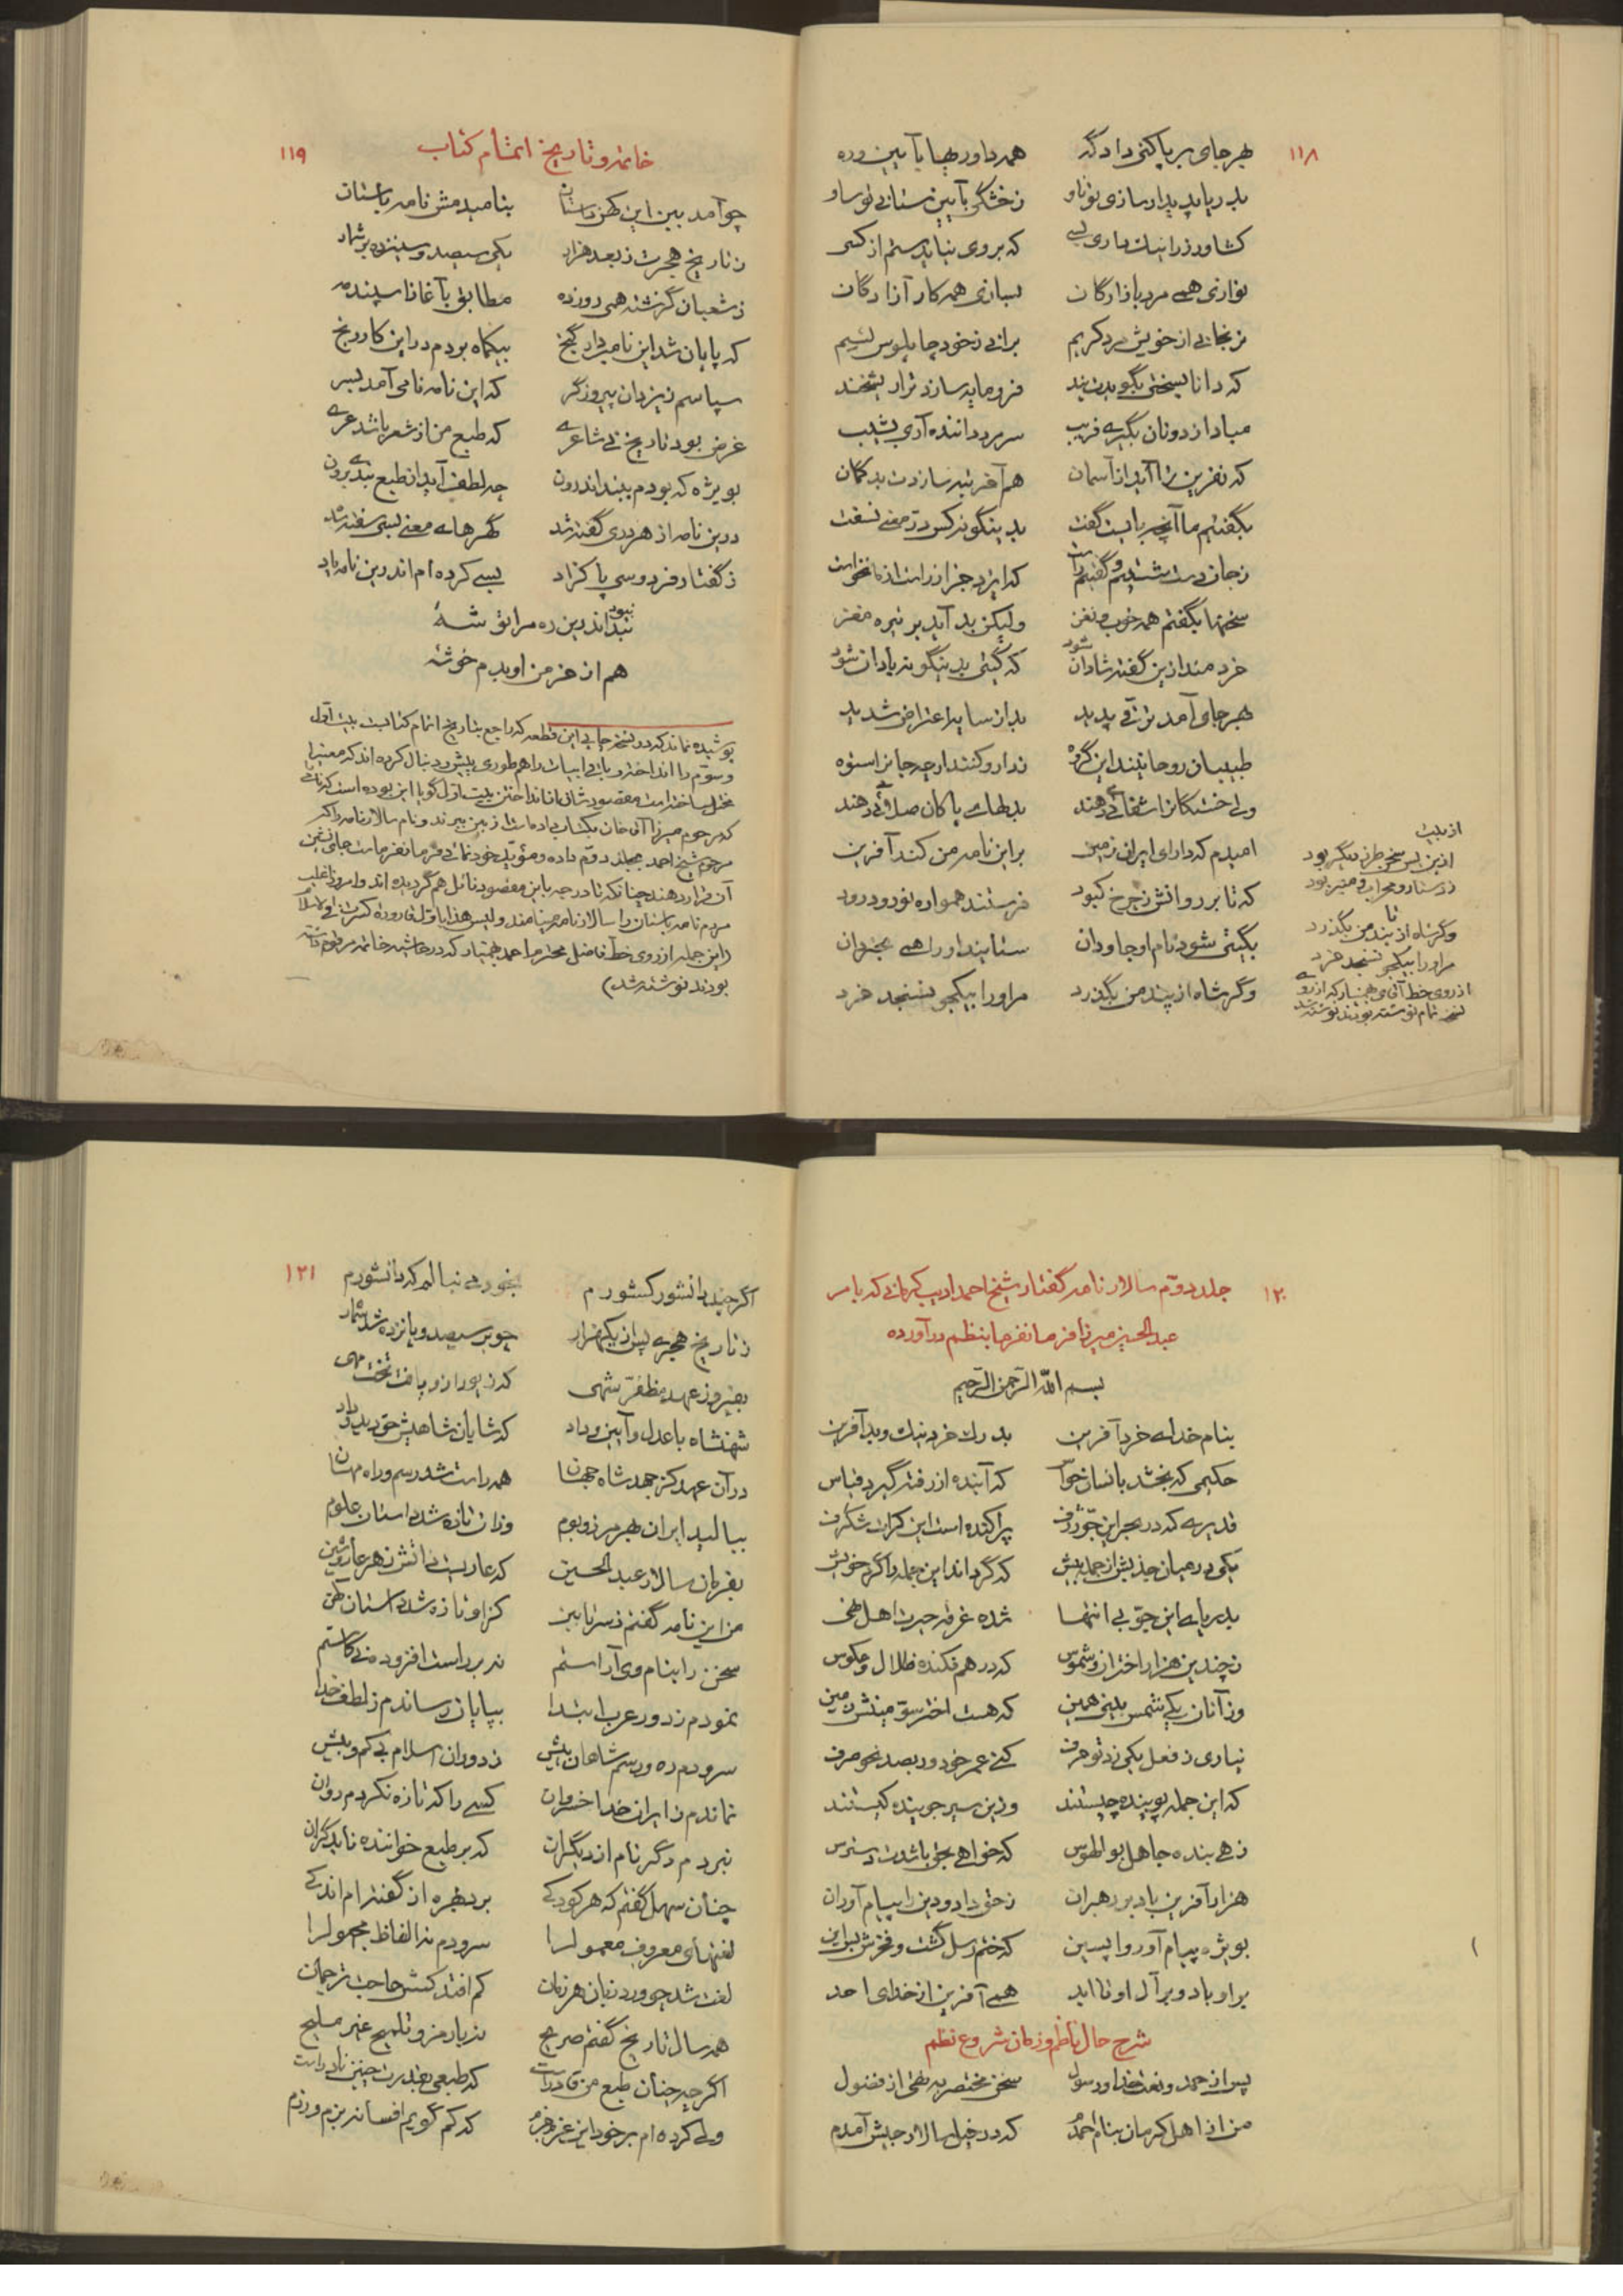 ۱۱۸
بهر جای بر پا کنی دادگه همه داوریها بآیین و ره
بدریا پدیدار سازی تو ناو ز خشکی بآیین ستانی تو ساو
کشاورز را نیک داری بسی که بروی نیاید ستم از کسی
نوازی همی مرد بازارگان بسازی همه کار آزادگان
نرنجانی از خویش مرد کریم برانی ز خود چاپلوس لئیم
که دانا بسختی بگویدت پند فرومایه سازد ترا ریشخند
مبادا ز دونان بگیری فریب سر مرد داننده آری بشیب
که نفرین ترا آید از آسمان هم آفریننده سازدت بدگمان
بگفتیم ما آنچه بایست گفت بدینگونه کس در معنی نسفت
ز جان دست شستیم و گفتیم راست که ایزد جز از راست از ما نخواست
سخنها بگفتم همه خوب و نغز ولیکن بد آید بر تیره مغز
خردمند ازین گفته شادان شود که گیتی بدینگونه آبادان شود
بهر جای آمد ترقی پدید بد از سایه اعتراض شدید
طبیبان روحانیند این گروه ندارو کنند ار چه جانرا ستوه
ولی خستگانرا شفائی دهند بدلهای پاکان صفائی دهند
امیدم که دارای ایران زمین بر این نامه من کند آفرین
که تا بر روانش ز چرخ کبود فرستند همواره نور و درود
بگیتی شود نام او جاودان ستایند او را همی بخردان
وگر شاه از پند من بگذرد مر او را بیکجو نسنجد خرد
از بیت
ازین پس سخن طرز دیگر بود
ز دستار و محراب و منبر بود
تا
وگر شاه از پند من بگذرد
مر او را بیکجو نسنجد خرد
از روی خط آقای بهمنیار که از روی
نسخه تمام نوشته بودند نوشته شد
۱۱۹
خاتمه و تاریخ اتمام کتاب
چو آمد ببین این کهن داستان بنامیدمش نامه باستان
ز تاریخ هجرت ز بعد هزار یکی سیصد و سیزده بر شمار
ز شعبان گذشته همی روز ده مطابق بآغاز اسپندمه
که پایان شد این نامبردار گنج بیکماه بودم در این کار رنج
سپاسم ز یزدان پیروزگر که این نامه نامی آمد بسر
غرض بود تاریخ نی شاعری که طبع من از شعر باشد عری
بویژه که بودم ببند اندرون چه لطف آید از طبع بندی برون
درین نامه از هر دری گفته شد گهرهای معنی بسی سفته شد
ز گفتار فردوسی پاکزاد بسی کرده ام اندرین نامه یاد
نبود
نبد اندرین ره مرا توشهٔ
هم از خرمن او بدم خوشهٔ
پوشیده نماند که در نسخه چاپی این قطعه که راجع بتاریخ اتمام کتابست بیت اول
و سوم را انداخته و باقی ابیات را هم طوری پیش و دنبال کرده اند که معنی را
مختل ساخته است مقصودشان از انداختن بیت اول گویا این بوده است که
که مرحوم میرزا آقا خان بکتاب داده است از بین ببرند و نام سالارنامه را که
مرحوم شیخ احمد بجلد دوم داده و مؤید خودنمائی فرمانفرماست جانشین
آن قرار دهند چنانکه تا درجه باین مقصود نائل هم گردیده اند و امروز اغلب
مردم نامه باستان را سالارنامه مینامند
(این جمله از روی خط فاضل محترم احمد بهمنیار که در حاشیه خاتمه مرقوم داشته
بودند نوشته شد)
۱۲۰
جلد دوم سالارنامه گفتار شیخ احمد ادیب کرمانی که بامر
عبدالحسین میرزا فرمانفرما بنظم درآورده
بسم الله الرحمن الرحیم
بنام خدای خرد آفرین بدرک خرد نیک و بد آفرین
حکیمی که بخشد بانسان حواس که آینده از رفته گیرد قیاس
قدیری که در بحر این جو ژرف پراکنده است این کرات شگرف
یکی در میان جذبش از جمله بیش که گرداند این جمله را گرد خویش
بدریای این جو بی انتها شده غرقه حیرت اهل نهی
ز چندین هزار اختران و شموس که در هم فکنده ظلال و عکوس
وز آنان یکی شمس بینی همین که هست اختر سو مینش زمین
نیاری ز فعل یکی زد تو حرف کنی عمر خود در بصد نحو صرف
که این جمله پوینده چیستند وزین سیر جوینده کیستند
زهی بنده جاهل بوالهوس که خواهی بحق باشدت دسترس
هزار آفرین باد بر رهبران ز حق داد و دین را پیام آوران
بویژه پیام آور واپسین که ختم رسل گشت و فخرش براین
بر او باد و بر آل او تا ابد همی آفرین از خدای احد
شرح حال ناظم و زمان شروع نظم
پس از حمد و نعت خدا و رسول سخن مختصر به نهی از فضول
من از اهل کرمان بنام احمدم که در خیل سالار جیش آمدم
۱۲۱
اگر چند دانشور کشورم بخود می نبالم که دانشورم
ز تاریخ هجری پس از یکهزار چو بر سیصد و پانزده شد شمار
بفیروز عهد مظفر شهی که زیور ازو یافت تخت مهی
شهنشاه با عدل و آیین و داد که شایان شاهیش حق دید و داد
در آن عهد کز جهد شاه جهان همه راست شد رسم و راه مهان
ببالید ایران بهر مرز و بوم وزان تازه شد داستان علوم
بفرمان سالار عبدالحسین که عاریست ذاتش ز هر عار و شین
من این نامه گفتم ز سر تا ببن کزاو تازه شد داستان کهن
سخن را بنام وی آراستم نه بر راست افزودم نی کاستم
نمودم ز دور عرب ابتدا بپایان رساندم ز لطف خدا
سرودم ره و رسم شاهان پیش ز دوران اسلام بی کم و بیش
نماندم ز ایران خدا خسروان کسی را که تازه نکردم روان
نبردم دگر نام از دیگران که بر طبع خواننده ناید گران
چنان سهل گفتم که هر کودکی برد بهره از گفته ام اندکی
لغتهای معروف معمول را سرودم نه الفاظ مجهول را
لغت شد چو ورد زبان هر زمان کم افتد کسش حاجت ترجمان
همه سال تاریخ گفتم صریح نه با رمز و تلمیح غیر ملیح
اگر چه چنان طبع من قادر است که طبعی بقدرت چنین نادر است
ولی کرده ام بر خود این عزم جزم که کم گویم افسانه بزم و رزم